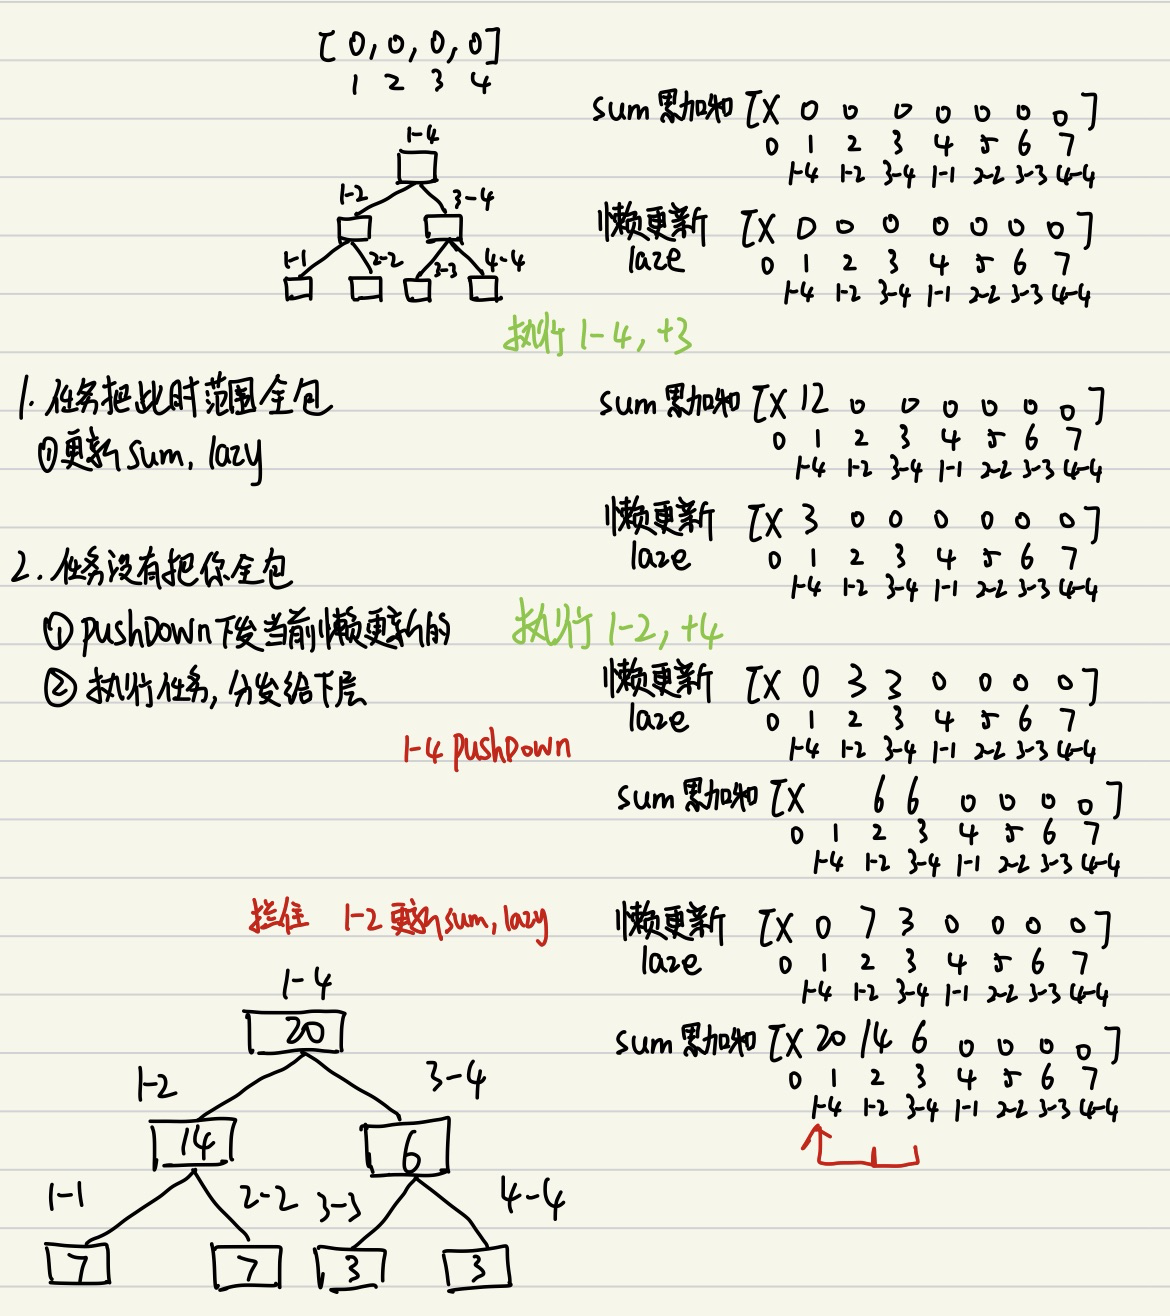 [0,0,0,0]
1 2 3 4
1-4
1-2 3-4
1-1 2-2 3-3 4-4
sum 累加和 [X 0 0 0 0 0 0 0]
0 1 2 3 4 5 6 7
1-4 1-2 3-4 1-1 2-2 3-3 4-4
懒更新 [X 0 0 0 0 0 0 0]
laze 0 1 2 3 4 5 6 7
1-4 1-2 3-4 1-1 2-2 3-3 4-4
执行 1-4, +3
1. 任务把此时范围全包
①更新 sum, lazy
sum 累加和 [X 12 0 0 0 0 0 0]
0 1 2 3 4 5 6 7
1-4 1-2 3-4 1-1 2-2 3-3 4-4
懒更新 [X 3 0 0 0 0 0 0]
laze 0 1 2 3 4 5 6 7
1-4 1-2 3-4 1-1 2-2 3-3 4-4
2. 任务没有把你全包
① pushDown 下发当前懒更新的
② 执行任务, 分发给下层
执行 1-2, +4
懒更新 [X 0 3 3 0 0 0 0]
laze 0 1 2 3 4 5 6 7
1-4 1-2 3-4 1-1 2-2 3-3 4-4
1-4 pushDown
sum 累加和 [X 6 6 0 0 0 0]
0 1 2 3 4 5 6 7
1-4 1-2 3-4 1-1 2-2 3-3 4-4
拦住 1-2 更新 sum, lazy
懒更新 [X 0 7 3 0 0 0 0]
laze 0 1 2 3 4 5 6 7
1-4 1-2 3-4 1-1 2-2 3-3 4-4
sum 累加和 [X 20 14 6 0 0 0 0]
0 1 2 3 4 5 6 7
1-4 1-2 3-4 1-1 2-2 3-3 4-4
1-4
20
1-2 3-4
14 6
1-1 2-2 3-3 4-4
7 7 3 3